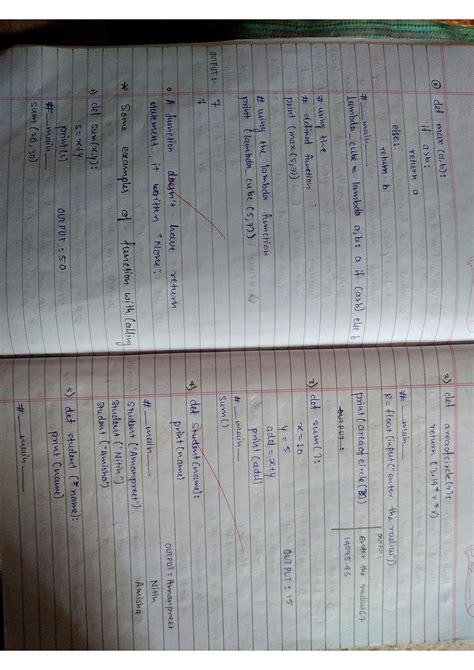 o) def max(a,b):
if a>b:
return a
else:
return b
#__main__
lambda_cube = lambda a,b: a if (a>b) else b
# using the
# defined function
print (max(5,7))
# using the lambda function
print (lambda_cube (5,7))
OUTPUT:- 7
7
o A function doesn't have return
statement, it written "None".
* Some examples of function with calling
1) def sum(x,y):
s = x+y
print(s)
#__main__
sum (20,30)
OUTPUT: 50
2) def areacircle(r):
return (3.14*r*r)
#__main__
R = float(input("enter the radius"))
print(areacircle(R))
OUTPUT:
enter the radius67
14095.46
3) def sum():
x = 10
y = 5
add = x+y
print(add)
#__main__
sum()
OUTPUT: 15
4) def student(name):
print(name)
#__main__
Student("Amanpreet")
Student("Nitin")
Student("Amisha")
OUTPUT: Amanpreet
Nitin
Amisha
5) def student(*name):
print(name)
#__main__